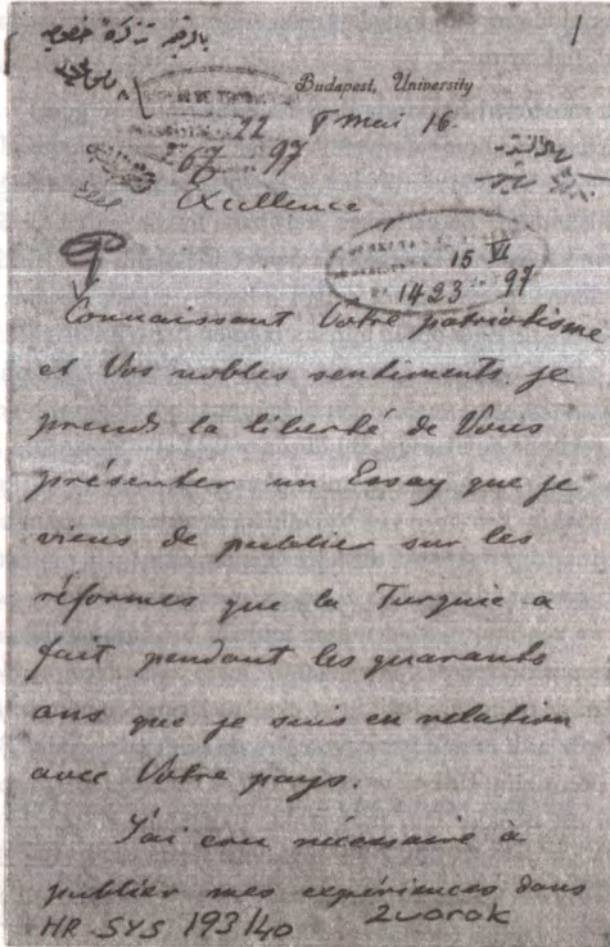 بالترجمه تذكرهٔ خصوصيه
1
Budapest, University
22 8 mai 16.
67 97
Excellence
15 VI
1423 97
Connaissant Votre patriotisme
et Vos nobles sentiments je
prends la liberté de Vous
présenter un Essay que je
viens de publier sur les
réformes que la Turquie a
fait pendant les quarants
ans que je suis en relation
avec Votre pays.
J'ai cru nécessaire à
publier mes expériences dans
HR SYS 193/40 2varak